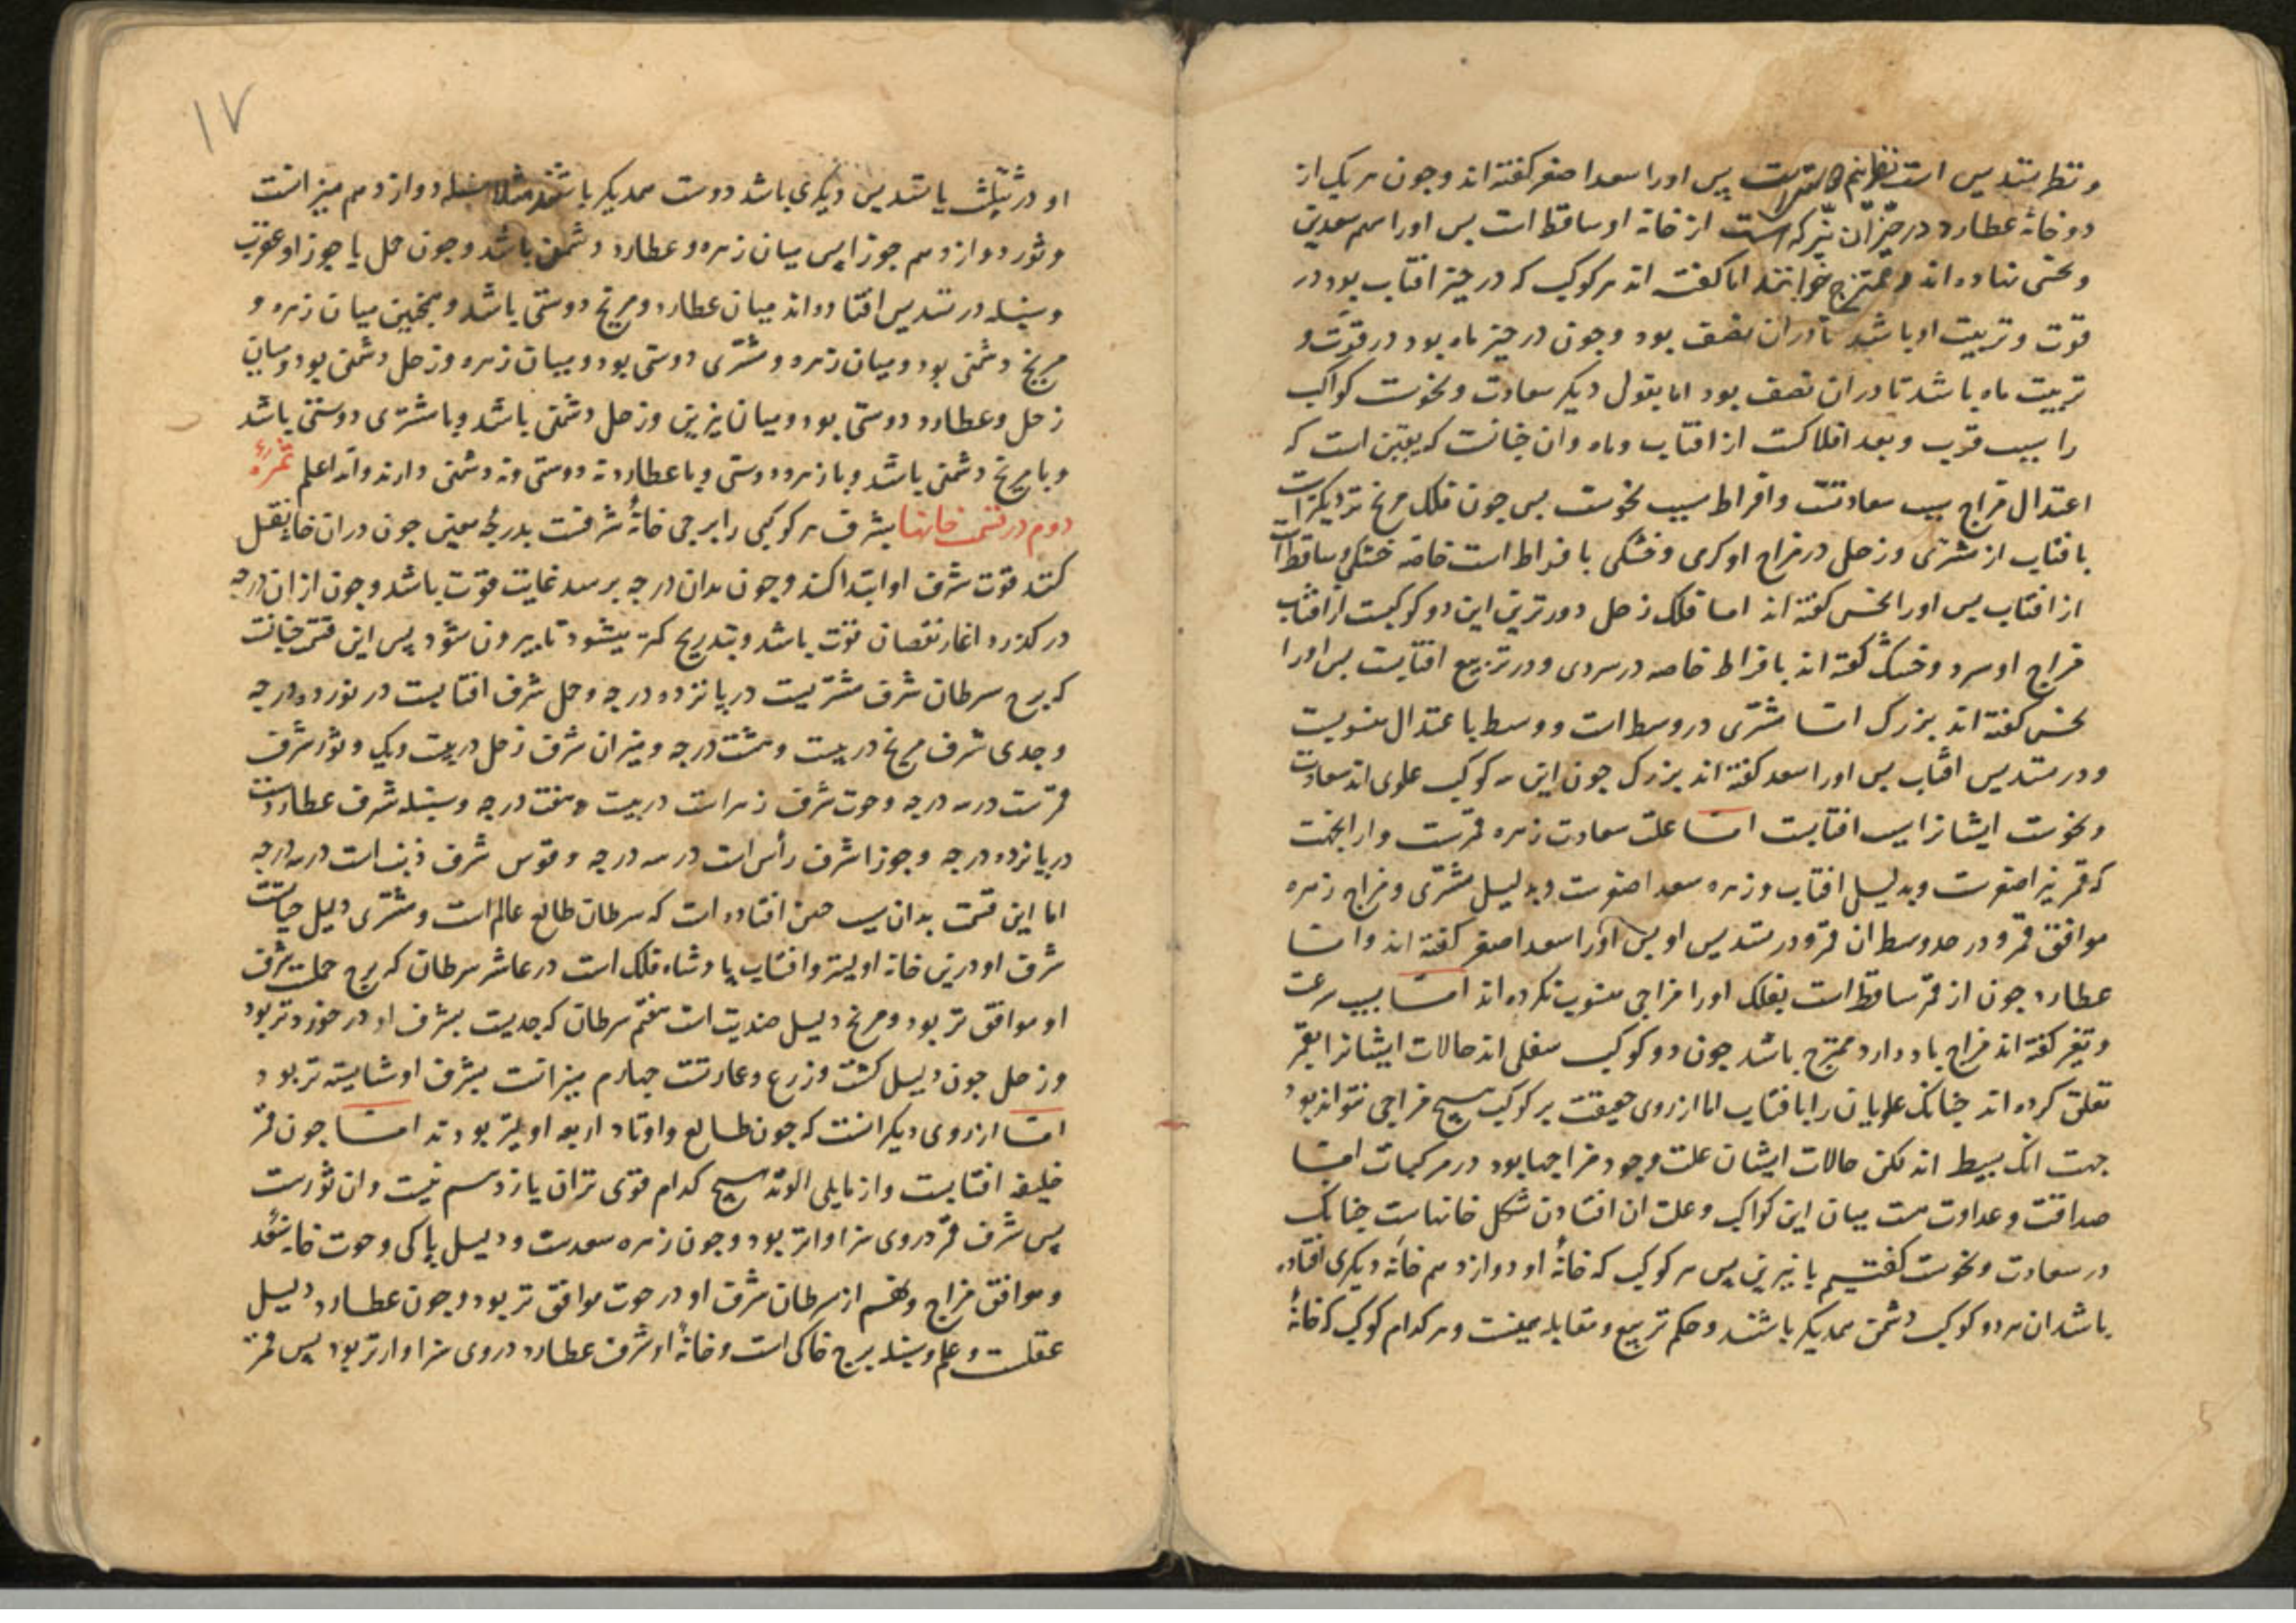 و نظر تسدیس است نظر نیم پس اورا سعد اصغر کفته اند و جون هر یک از
دو خانهٔ عطارد در حیّز آن نیّر که است از خانه او ساقط است بس اورا اسم سعدین
و نحسی ننهاده اند و ممتزج خوانند اما کفته اند هر کوکب که در حیز افتاب بود در
قوت و تربیت او باشد تا دران نصف بود و جون در حیز ماه بود در قوّت و
تربیت ماه باشد تا دران نصف بود اما بقول دیکر سعادت و نحوست کواکب
را بسبب قرب و بعد افلاکست از افتاب و ماه و ان جنانست که یقین است که
اعتدال مزاج سبب سعادتست و افراط سبب نحوست بس جون فلک مریخ نزدیکتر است
بافتاب از مشتری و زحل در مزاج او کرمی و خشکی بافراط است خاصّه خشکی و ساقط است
از افتاب بس اورا نحس کفته اند اما فلک زحل دورترین این دو کوکبست از افتاب
مزاج او سرد و خشک کفته اند بافراط خاصه در سردی و در تربیع افتابست بس اورا
نحس کفته اند بزرک امّا مشتری در وسط است و وسط با عتدال منسوبست
و در تسدیس افتاب بس اورا سعد کفته اند بزرک جون این سه کوکب علوی اند سعادت
و نحوست ایشانرا سبب افتابست امّا علت سعادت زهره قمرست و از انجهت
که قمر نیر اصغرست و بدلیلی افتاب و زهره سعد اصغرست و بدلیل مشتری و مزاج زهره
موافق قمر و در حد وسط ان قمر و در تسدیس او بس اورا سعد اصغر کفته اند و امّا
عطارد جون از قمر ساقط است بفلک اورا مزاجی منسوب نکرده اند امّا بسبب سرعت
و تغیر کفته اند مزاج باد دارد و ممتزج باشد جون دو کوکب سفلی اند حالات ایشانرا بقمر
تعلق کرده اند جنانک علویان را بافتاب اما از روی حقیقت بر کوکب هیچ مزاجی نتواند بود
جهت انک بسیط اند لکن حالات ایشان علت وجود مزاجها بود در مرکبات امّا
صداقت و عداوت هست میان این کواکب و علت ان افتادن شکل خانهاست جنانک
در سعادت و نحوست کفتیم با نیرین پس هر کوکب که خانهٔ او دوازدهم خانه دیکری افتاده
باشد ان هر دو کوکب دشمن همدیکر باشند و حکم تربیع و مقابله همینست و هر کدام کوکب که خانهٔ
۱۷
او در تثلیث یا تسدیس دیکری باشد دوست همدیکر باشند مثلا سنبله دوازدهم میزانست
و ثور دوازدهم جوزا پس میان زهره و عطارد دشمنی باشد و جون حمل یا جوزا و عقرب
و سنبله در تسدیس افتاده اند میان عطارد و مریخ دوستی باشد و همجنین میان زهره و
مریخ دشمنی بود و میان زهره و مشتری دوستی بود و میان زهره و زحل دشمنی بود و میان
زحل و عطارد دوستی بود و میان نیرین و زحل دشمنی باشد و با مشتری دوستی باشد
و با مریخ دشمنی باشد و با زهره دوستی و با عطارد نه دوستی و نه دشمنی دارند والله اعلم ثمرهٔ
دوم در قسمت خانها بشرف هر کوکبی را برجی خانهٔ شرفست بدرجهٔ معین جون دران خانه نقل
کند قوت شرف او ابتدا کند و جون بدان درجه برسد غایت قوّت باشد و جون از ان درجه
در کذرد اغاز نقصان قوّت باشد و بتدریج کمتر میشود تا بیرون شود پس این قسمت جنانست
که برج سرطان شرف مشتریست در پانزده درجه و حمل شرف افتابست در نوزده درجه
و جدی شرف مریخ در بیست و هشت درجه و میزان شرف زحل در بیست و یک و ثور شرف
قمرست در سه درجه و حوت شرف زهراست در بیست و هفت درجه و سنبله شرف عطاردست
در پانزده درجه و جوزا شرف رأس است در سه درجه و قوس شرف ذنب است در سه درجه
اما این قسمت بدان سبب جنین افتاده است که سرطان طالع عالم است و مشتری دلیل حیاتست
شرف او درین خانه اولیتر و افتاب پادشاه فلک است در عاشر سرطان که برج حملست شرف
او موافق تر بود و مریخ دلیل ضدیت است هفتم سرطان که جدیست بشرف او در خورد تر بود
و زحل جون دلیل کشت و زرع و عمارتست جهارم میزانست بشرف او شایسته تر بود و
امّا از روی دیکر انست که جون طالع و اوتاد اربعه اولیتر بودند امّا جون قمر
خلیفه افتابست و از مایلی الوتد هیچ کدام قوی تر ان یازدهم نیست و ان ثورست
پس شرف قمر در وی سزاوارتر بود و جون زهره سعدست و دلیل پاکی و حوت خانه سعد
و موافق مزاج و نهم از سرطان شرف او در حوت موافق تر بود و جون عطارد دلیل
عقلست و علم و سنبله برج خاکی است و خانهٔ او شرف عطارد در وی سزاوارتر بود پس قمر